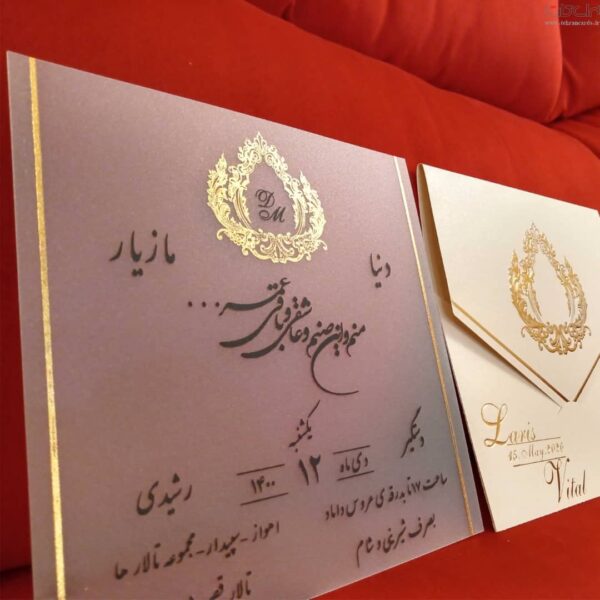 www.tehrancards.ir
D M
دنیا
مازیار
منم و این صنم و عاشقی و باقی عمر ...
یکشنبه
دستگیر
دی ماه ۱۲ ۱۴۰۰
رشیدی
ساعت ۱۷ تا بدرقه ی عروس و داماد
بصرف شیرینی و شام
اهواز - سپیدار - مجموعه تالار ها
تالار
Laris
15.May.2026
Vital